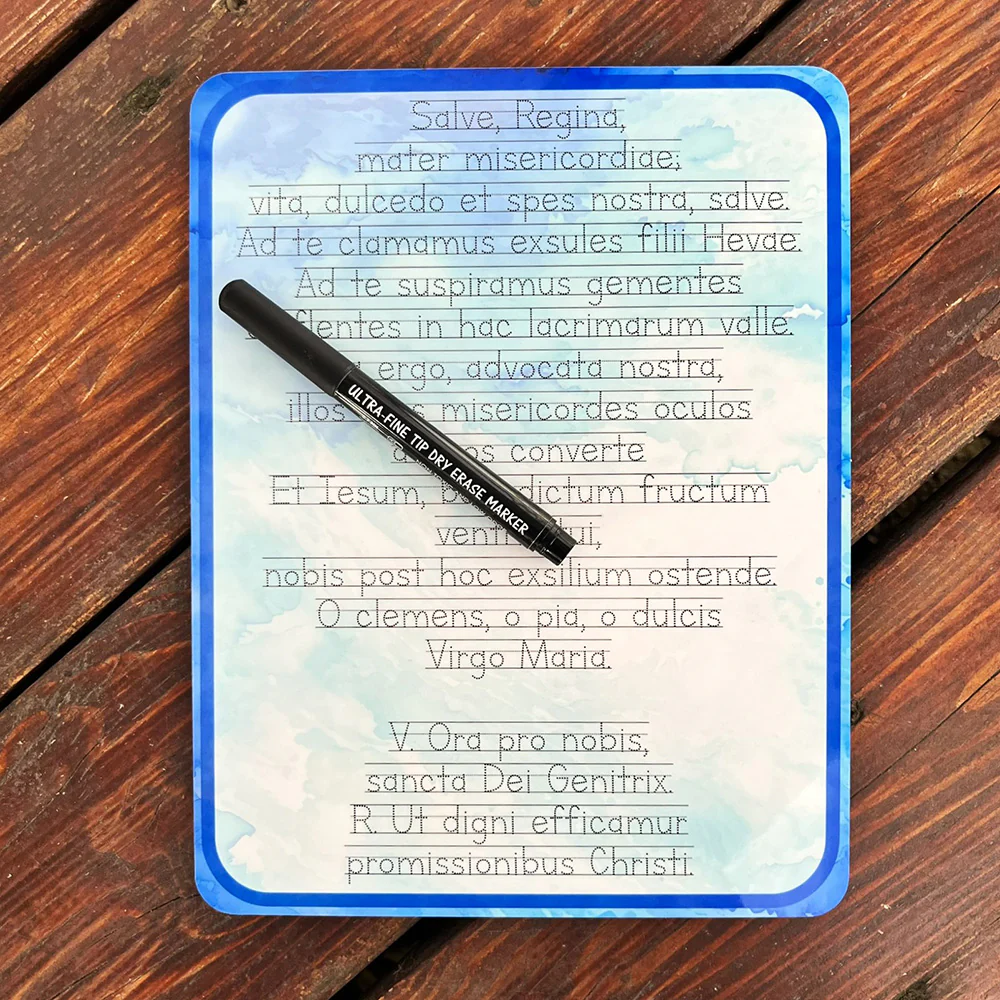 Salve, Regina,
mater misericordiae;
vita, dulcedo et spes nostra, salve.
Ad te clamamus exsules filii Hevae.
Ad te suspiramus gementes
flentes in hac lacrimarum valle.
ergo, advocata nostra,
illos misericordes oculos
converte
Et Iesum, fructum
nobis post hoc exsilium ostende.
O clemens, o pia, o dulcis
Virgo Maria.
V. Ora pro nobis,
sancta Dei Genitrix.
R. Ut digni efficamur
promissionibus Christi.
ULTRA-FINE TIP DRY ERASE MARKER